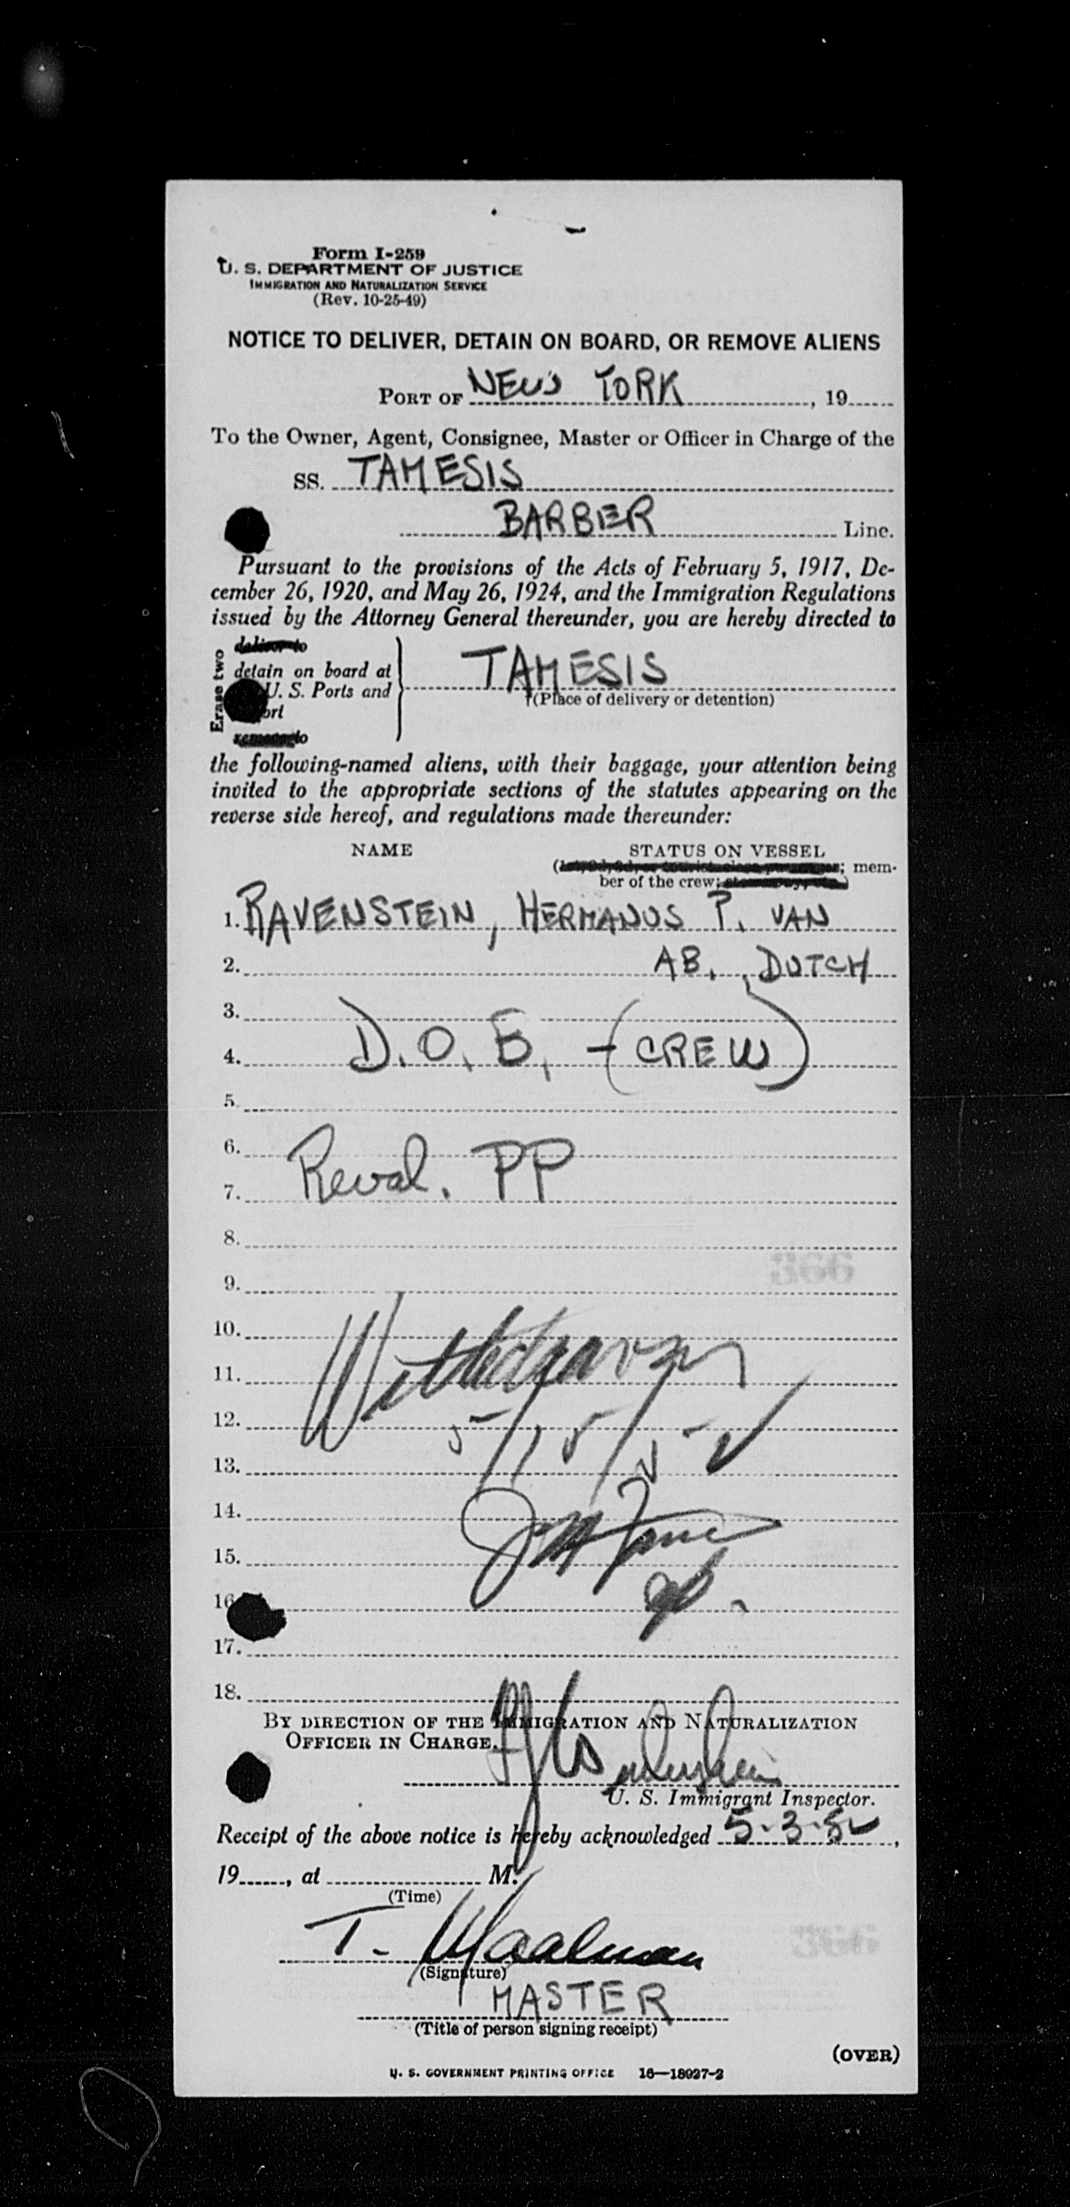 Form I-259
U. S. DEPARTMENT OF JUSTICE
IMMIGRATION AND NATURALIZATION SERVICE
(Rev. 10-25-49)
NOTICE TO DELIVER, DETAIN ON BOARD, OR REMOVE ALIENS
PORT OF NEW YORK, 19
To the Owner, Agent, Consignee, Master or Officer in Charge of the
SS. TAMESIS
BARBER Line.
Pursuant to the provisions of the Acts of February 5, 1917, De-
cember 26, 1920, and May 26, 1924, and the Immigration Regulations
issued by the Attorney General thereunder, you are hereby directed to
Erase two
deliver to
detain on board at
U. S. Ports and
remove to
TAMESIS
(Place of delivery or detention)
the following-named aliens, with their baggage, your attention being
invited to the appropriate sections of the statutes appearing on the
reverse side hereof, and regulations made thereunder:
NAME STATUS ON VESSEL
; mem-
ber of the crew;
1. RAVENSTEIN, HERMANUS P. VAN
2. AB., DUTCH
3.
4. D.O.B, - (CREW)
5.
6.
7. Reval. PP
8.
9.
10.
11.
12.
13. 5/15/52
14.
15.
16
17.
18.
BY DIRECTION OF THE IMMIGRATION AND NATURALIZATION
OFFICER IN CHARGE.
U. S. Immigrant Inspector.
Receipt of the above notice is hereby acknowledged 5.3.52,
19, at M.
(Time)
T. Maalman
(Signature)
MASTER
(Title of person signing receipt)
(OVER)
U. S. GOVERNMENT PRINTING OFFICE 16—18027-2